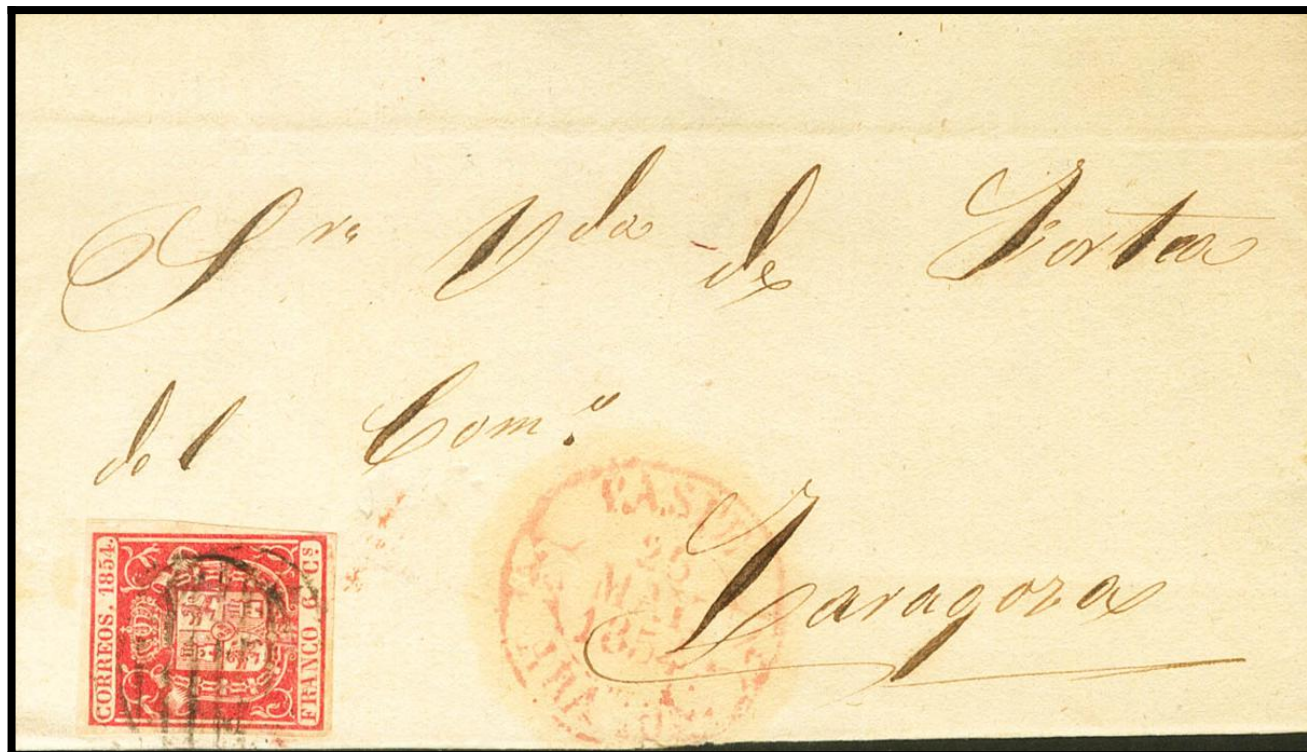 Sra Vda de Zorta
del Como
Zaragoza
CORREOS. 1854.
FRANCO. 6 Cs
1854